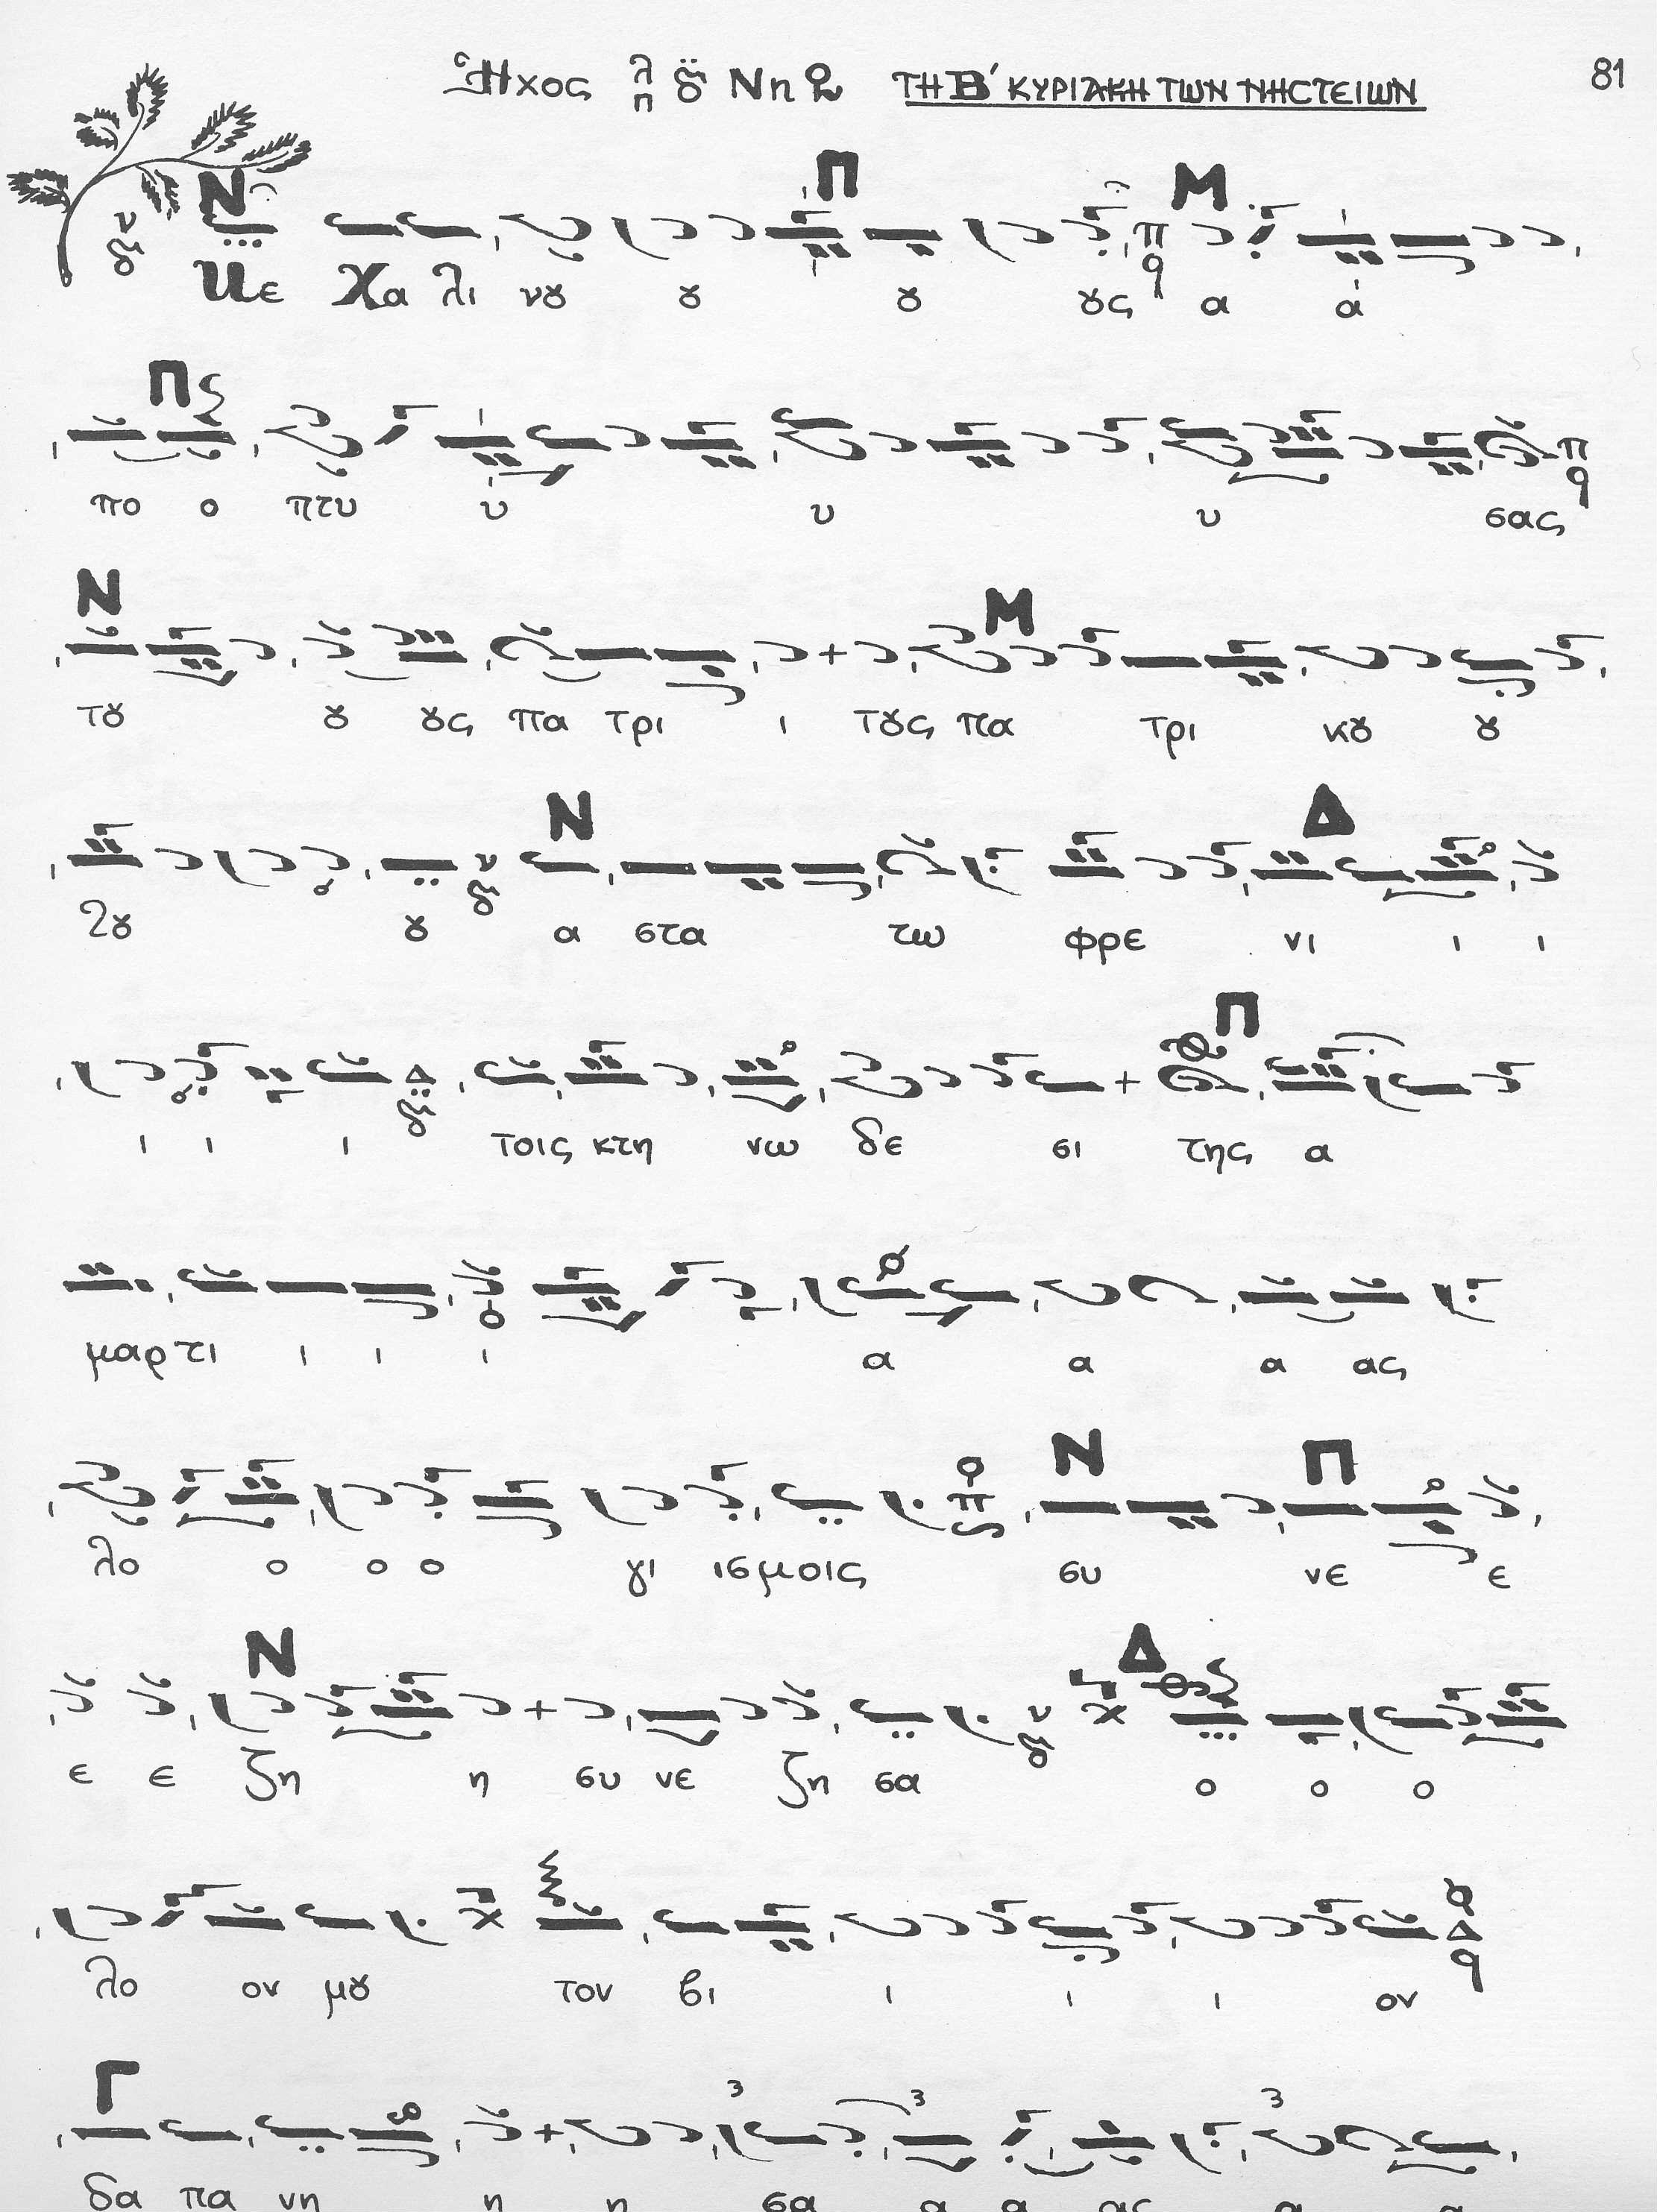 Ἦχος λ π ӧ Νη ΤΗ Β´ ΚΥΡΙΑΚΗ ΤΩΝ ΝΗСΤΕΙΩΝ 81
Ν Π Μ
Με Χα λι νȣ ȣ ȣ ȣς α α
Π
πο ο πτυ υ υ υ σας
Ν Μ
τȣ ȣ ȣς πα τρι ι τȣς πα τρι κȣ ȣ
Ν Δ
ȣ α στα τω φρε νι ι ι
Π
ι ι ι τοις κτη νω δε σι της α
μαρτι ι ι ι α α α ας
Ν Π
λο ο ο ο γι ισμοις συ νε ε
Ν Δ
ε ε ζη η συ νε ζη σα ο ο ο
λο ον μȣ τον βι ι ι ι ον
Γ
δα πα νη η η σα α α ας α α